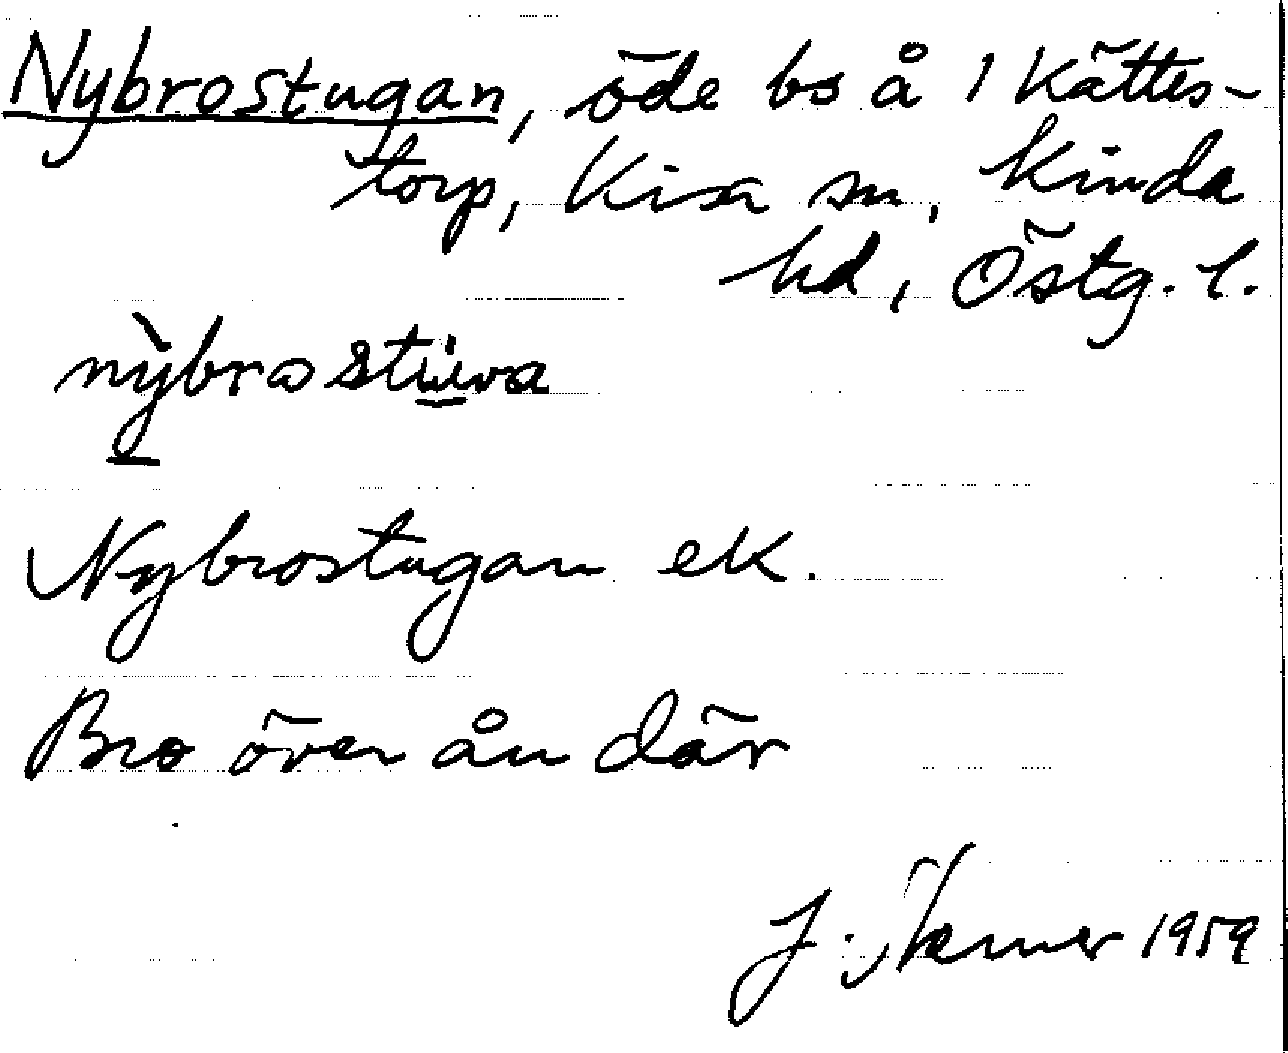 Nybrostugan, öde bs å 1 Kättes-
torp, Kisa sn, Kinda
hd, Östg. l.
nỳbrostüva
Nybrostugan ek.
Bro över ån där
J. 1959